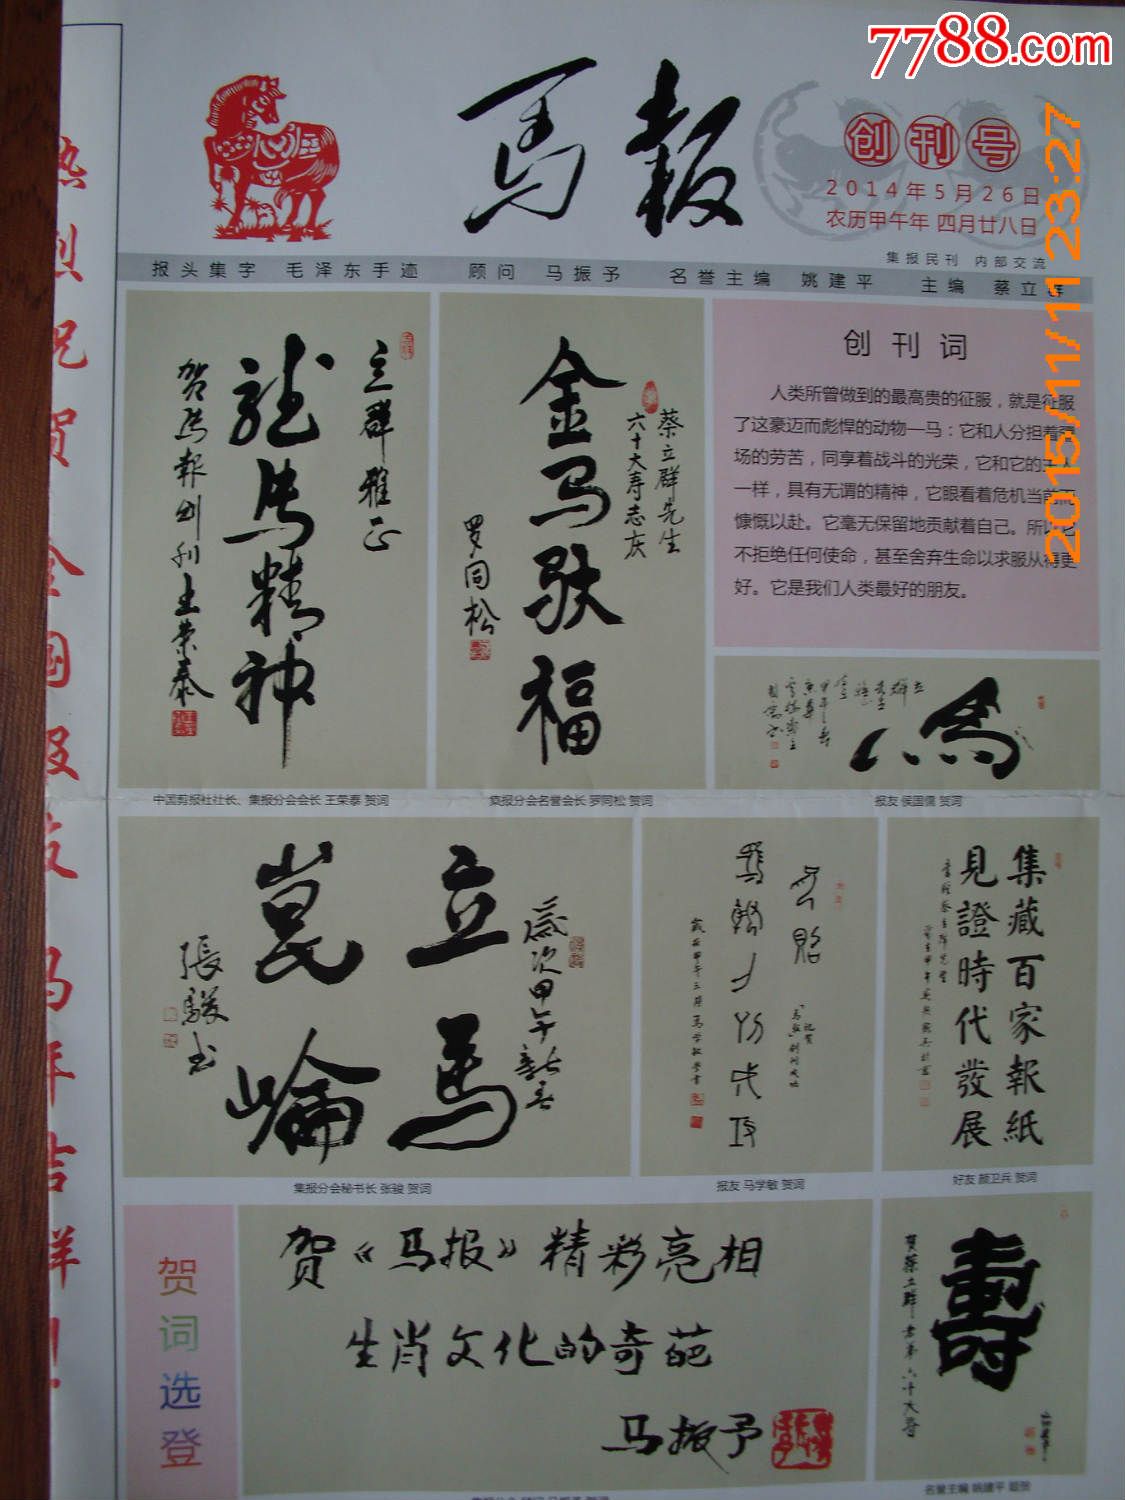 7788.com
马报
创刊号
2014年5月26日
农历甲午年 四月廿八日
集报民刊 内部交流
报头集字 毛泽东手迹 顾问 马振予 名誉主编 姚建平 主编 蔡立群
2015/11/11 23:27
热烈祝贺全国报友马年吉祥！
立群雅正
龙马精神
贺马报创刊王荣泰
中国剪报社社长、集报分会会长 王荣泰 贺词
蔡立群先生
六十大寿志庆
金马驮福
罗同松
集报分会名誉会长 罗同松 贺词
创刊词
人类所曾做到的最高贵的征服，就是征服
了这豪迈而彪悍的动物—马：它和人分担着疆
场的劳苦，同享着战斗的光荣，它和它的主人
一样，具有无谓的精神，它眼看着危机当前而
慷慨以赴。它毫无保留地贡献着自己。所以它
不拒绝任何使命，甚至舍弃生命以求服从得更
好。它是我们人类最好的朋友。
馬
报友 侯国儒 贺词
歲次甲午新春
立馬
崑崙
張駿书
集报分会秘书长 张骏 贺词
报友 马学敏 贺词
集藏百家報紙
見證時代發展
好友 颜卫兵 贺词
贺词选登
贺《马报》精彩亮相
生肖文化的奇葩
马振予
壽
贺蔡立群老弟六十大寿
名誉主编 姚建平 题贺